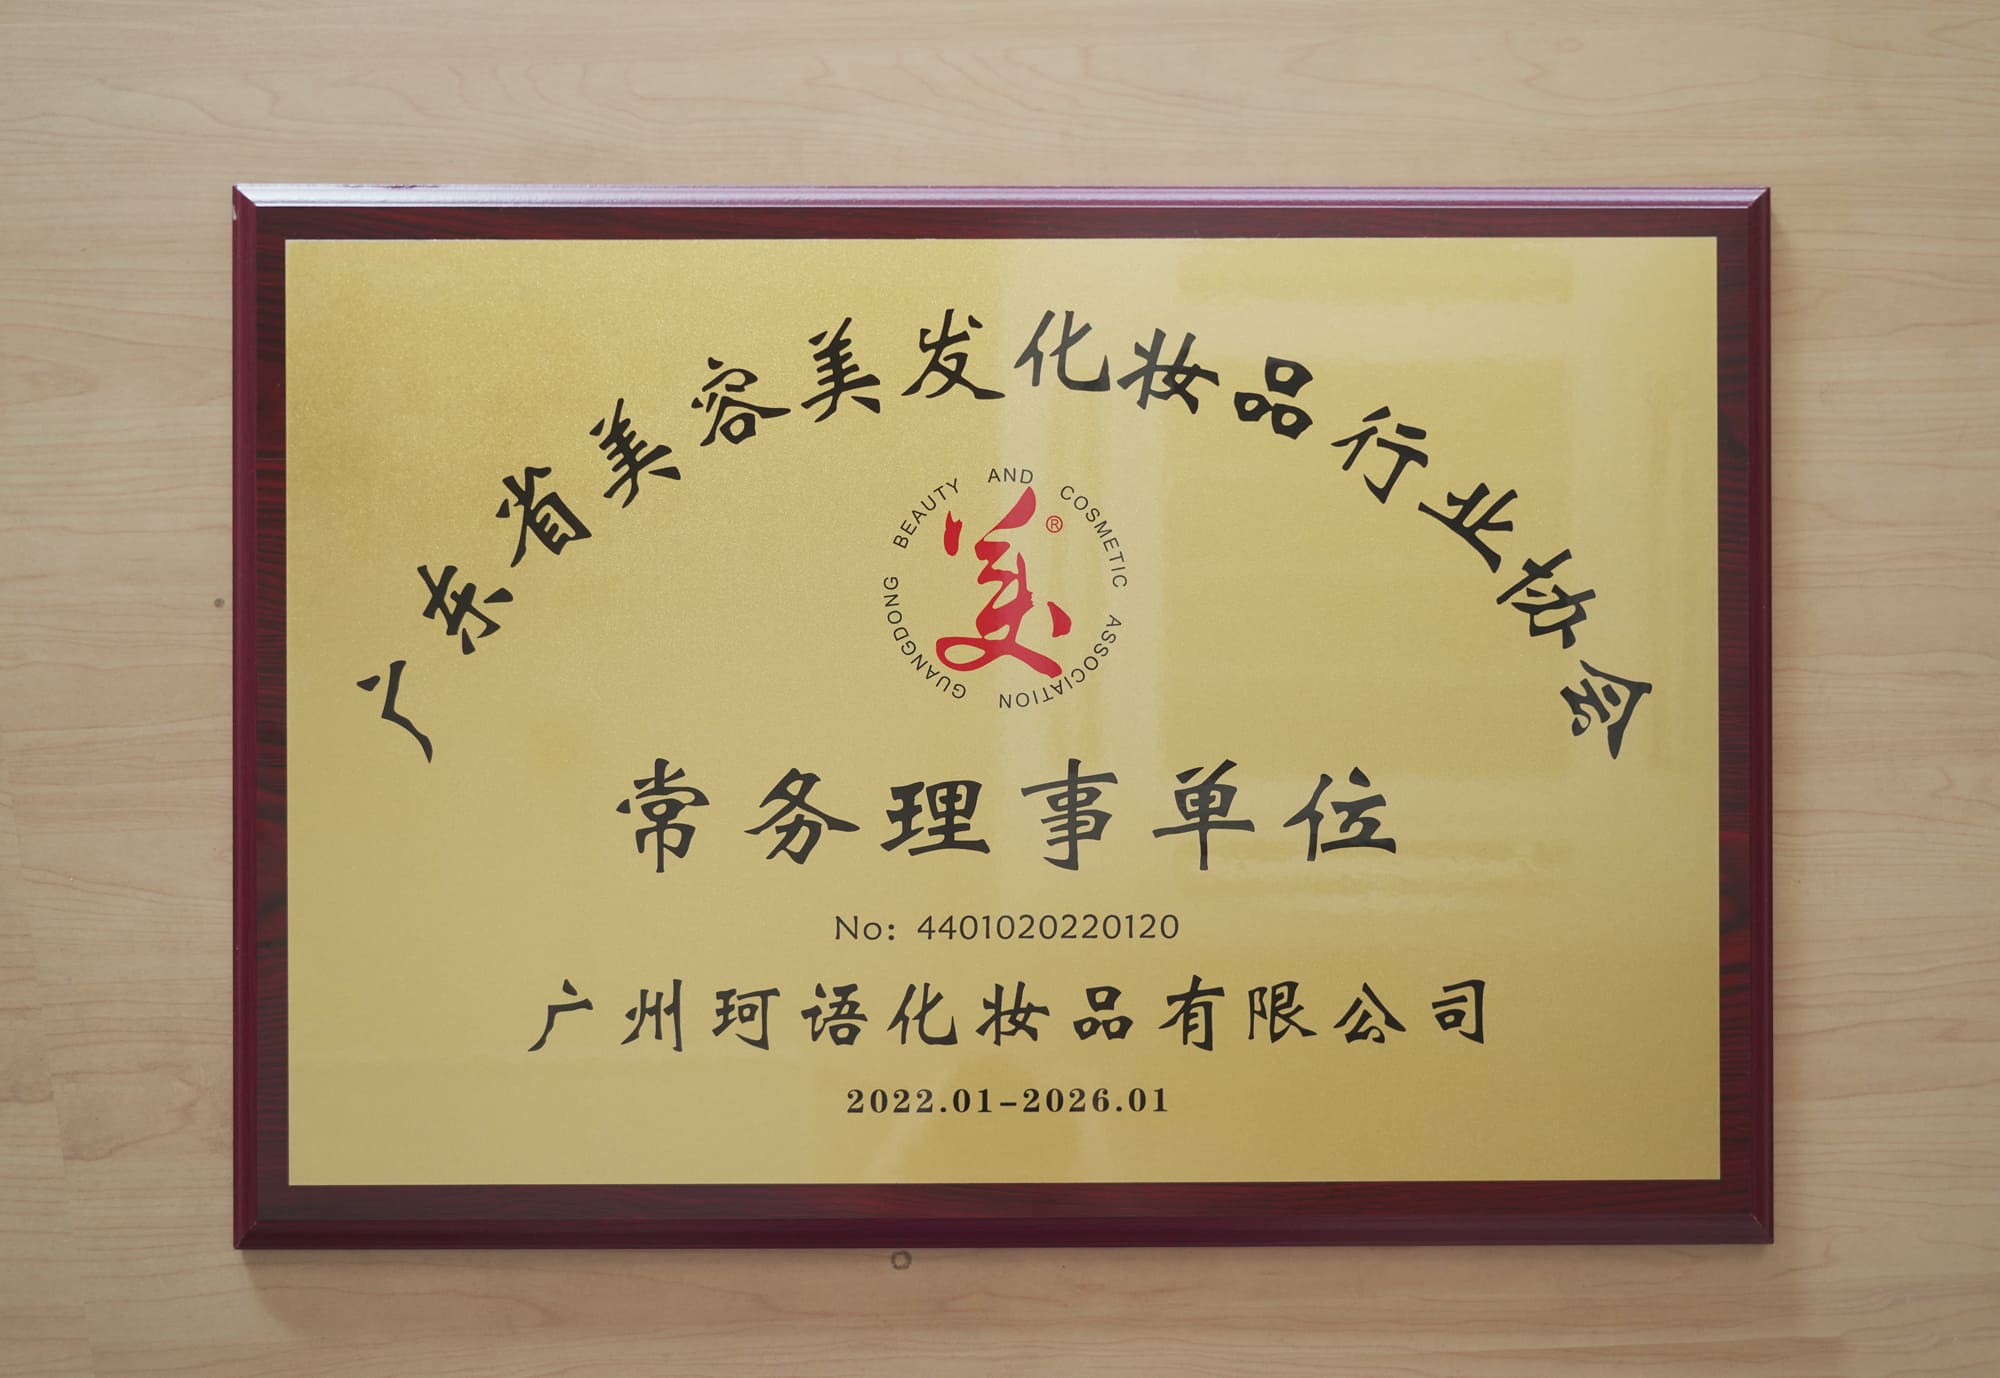 广东省美容美发化妆品行业协会
GUANGDONG BEAUTY AND COSMETIC ASSOCIATION
美®
常务理事单位
No: 4401020220120
广州珂语化妆品有限公司
2022.01-2026.01